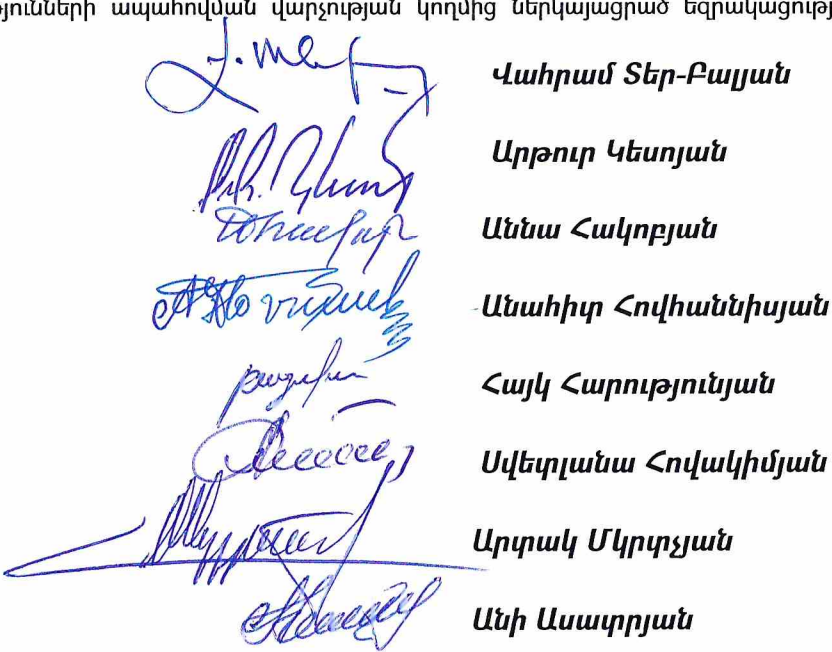 յունների ապահովման վարչության կողմից ներկայացրած եզրակացությ
Վահրամ Տեր-Բալյան
Արթուր Կեսոյան
Աննա Հակոբյան
Անահիտ Հովհաննիսյան
Հայկ Հարությունյան
Սվետլանա Հովակիմյան
Արտակ Մկրտչյան
Անի Ասատրյան